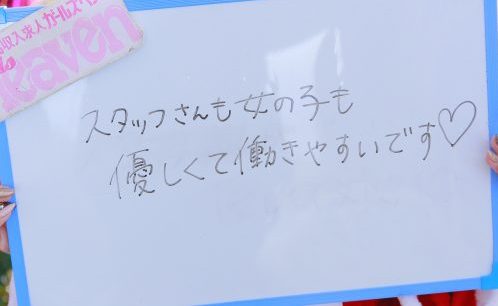 収入求人ガールズヘ
Heaven
スタッフさんも女の子も
優しくて働きやすいです♡